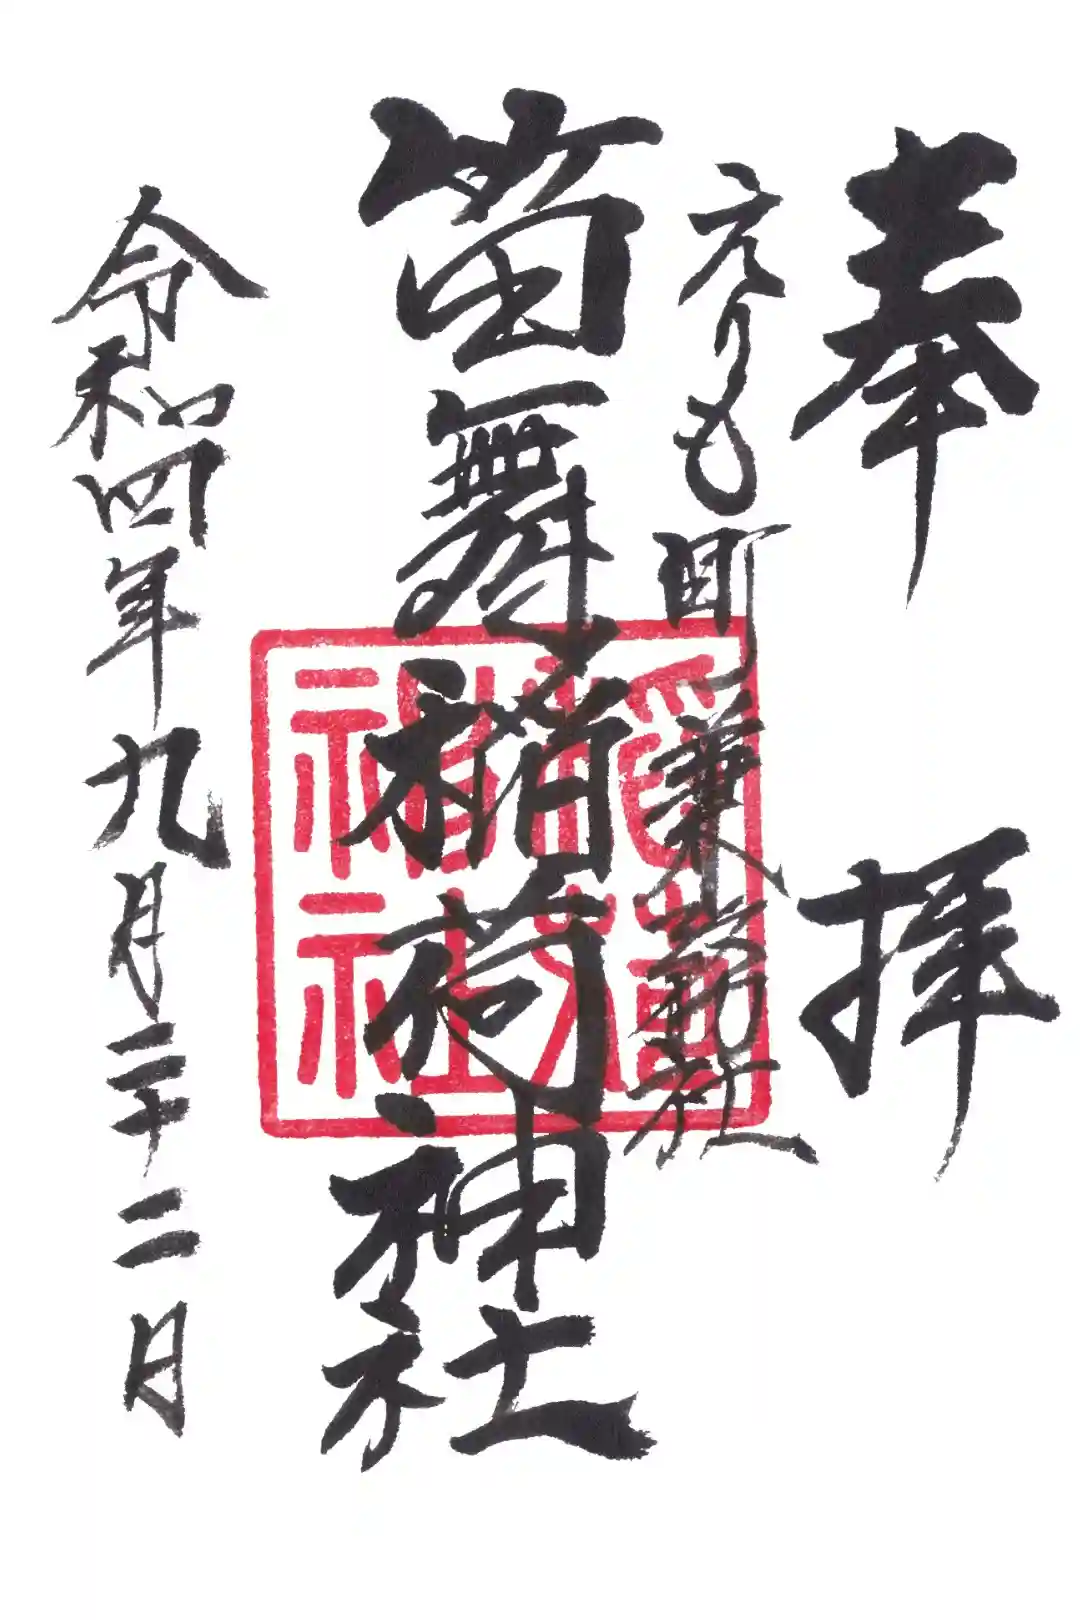 奉拝
えりも町兼務社
笛舞稲荷神社
令和四年九月二十二日